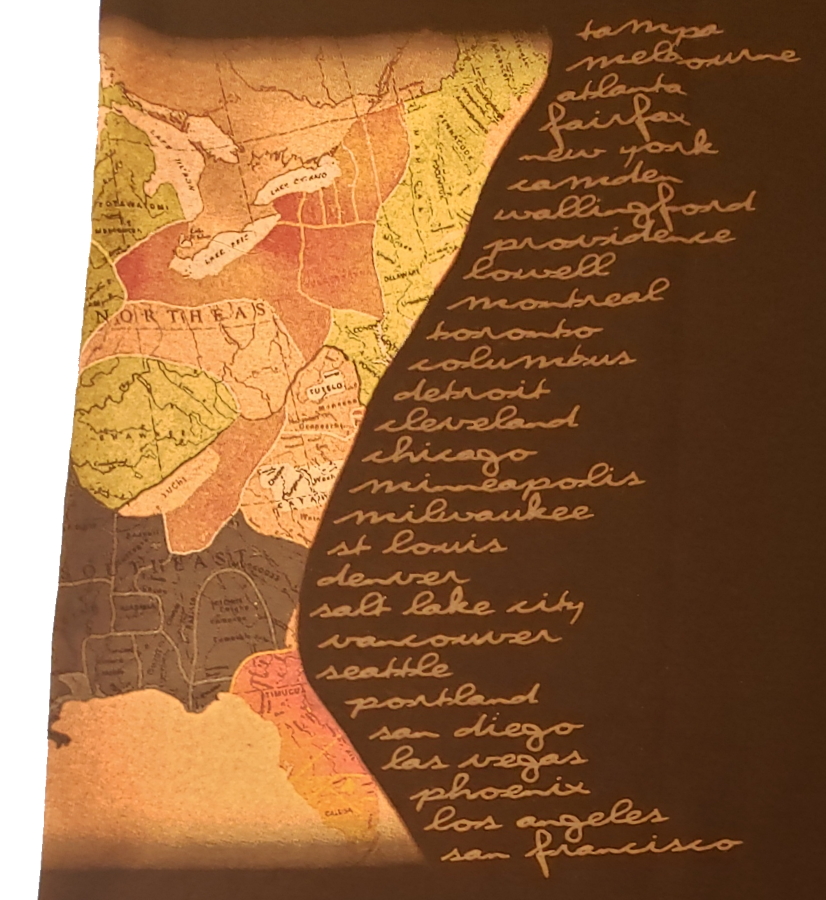 tampa
melbourne
atlanta
fairfax
new york
camden
wallingford
providence
lowell
montreal
toronto
columbus
detroit
cleveland
chicago
minneapolis
milwaukee
st louis
denver
salt lake city
vancouver
seattle
portland
san diego
las vegas
phoenix
los angeles
san francisco
LAKE HURON
LAKE ONTARIO
POTAWATOMI
LAKE ERIE
DELAWARE
NORTHEAS
TUTELO
SHAWNEE
YUCHI
CATAWBA
SOUTHEAST
TIMUCUA
CALUSA